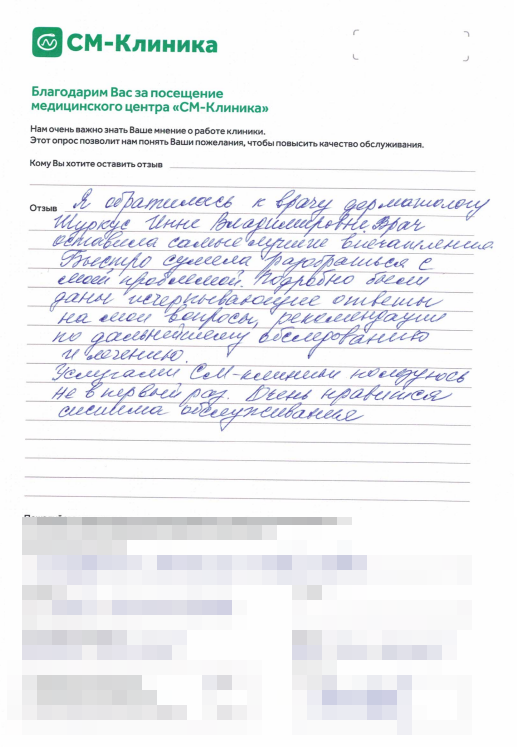 СМ-Клиника
Благодарим Вас за посещение
медицинского центра «СМ-Клиника»
Нам очень важно знать Ваше мнение о работе клиники.
Этот опрос позволит нам понять Ваши пожелания, чтобы повысить качество обслуживания.
Кому Вы хотите оставить отзыв
Отзыв Я обратилась к врачу дерматологу
Шуркус Инне Владимировне. Врач
оставила самые лучшие впечатления.
Быстро сумела разобраться с
моей проблемой. Подробно были
даны исчерпывающие ответы
на мои вопросы, рекомендации
по дальнейшему обследованию
и лечению.
Услугами СМ-клиники пользуюсь
не в первый раз. Очень нравится
система обслуживания